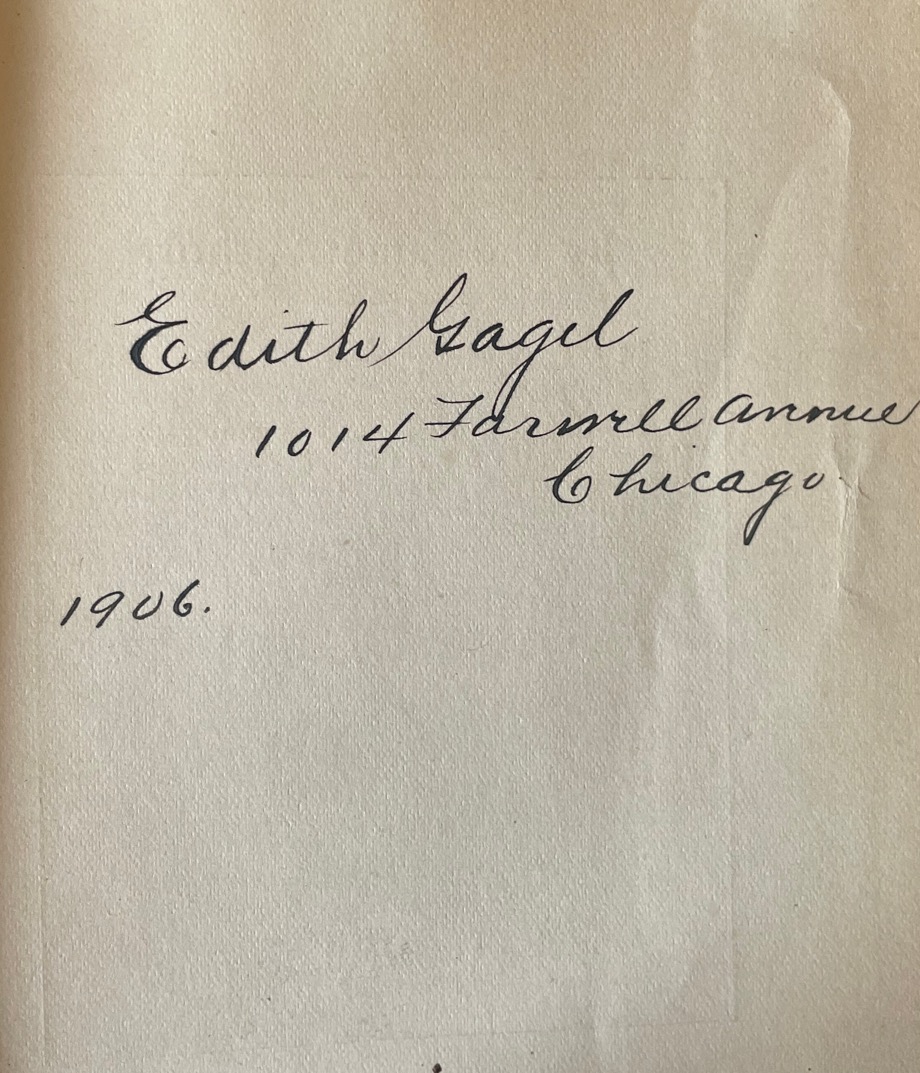 Edith Gagel
1014 Farwell Avenue
Chicago
1906.